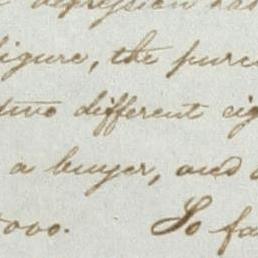 depression ha
figure, the purc
two different cig
a buyer, and
000. So fa